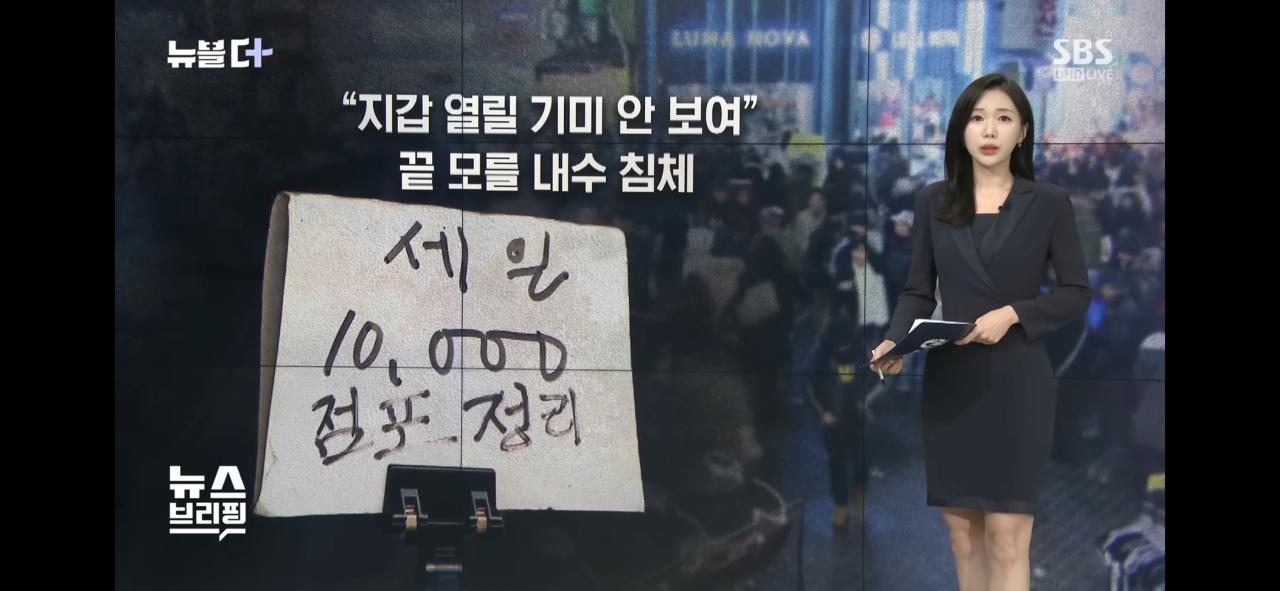 뉴블더+
SBS
UHD LIVE
“지갑 열릴 기미 안 보여”
끝 모를 내수 침체
LUNA NOVA
세일
10,000
점포정리
뉴스
브리핑